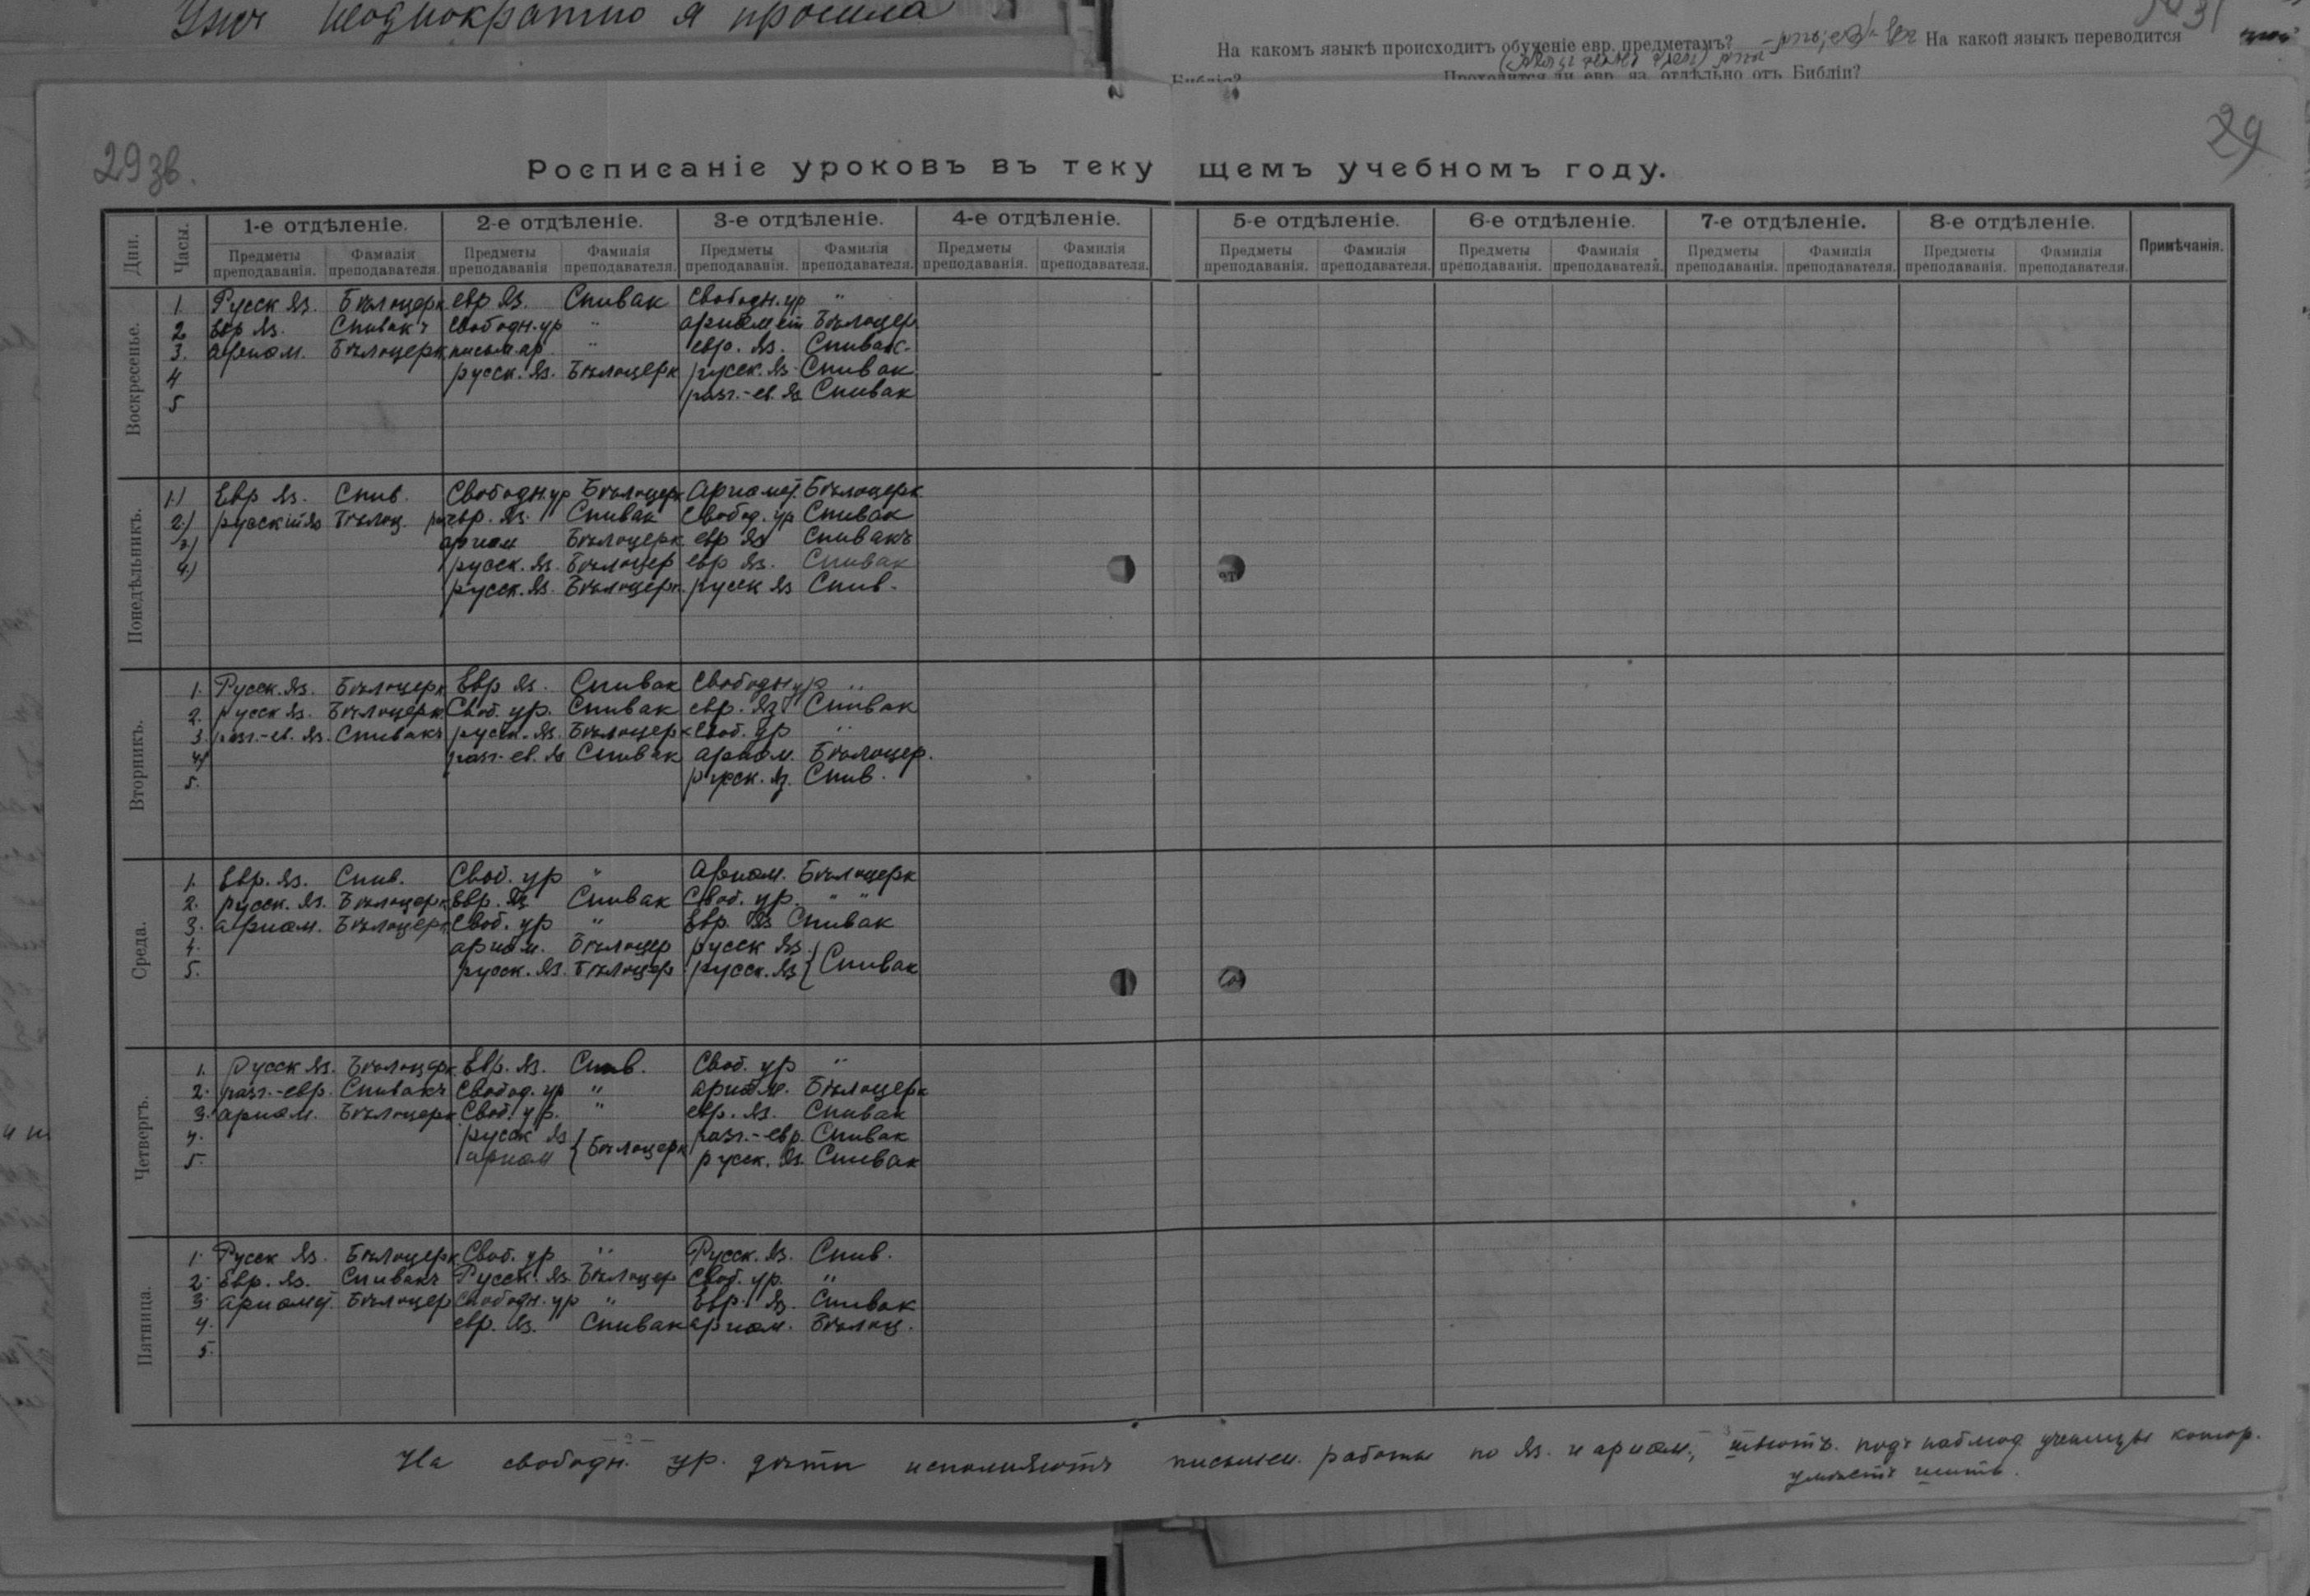 Уже неоднократно я просила
На какомъ языкѣ происходитъ обученіе евр. предметамъ? На какой языкъ переводится
Библія? Проходится ли евр. яз. отдѣльно отъ Библіи?
29 зв. 29
Росписаніе уроковъ въ текущемъ учебномъ году.
Дни. Часы. 1-е отдѣленіе. 2-е отдѣленіе. 3-е отдѣленіе. 4-е отдѣленіе. 5-е отдѣленіе. 6-е отдѣленіе. 7-е отдѣленіе. 8-е отдѣленіе. Примѣчанія.
Предметы преподаванія. Фамилія преподавателя. Предметы преподаванія Фамилія преподавателя. Предметы преподаванія. Фамилія преподавателя. Предметы преподаванія. Фамилія преподавателя. Предметы преподаванія. Фамилія преподавателя. Предметы преподаванія. Фамилія преподавателя. Предметы преподаванія. Фамилія преподавателя. Предметы преподаванія. Фамилія преподавателя.
Воскресенье.
1. Русск яз. Бѣлоцерк евр яз. Спивак Свободн. ур "
2 Евр яз. Спивакъ Свободн. ур " ариѳмет Бѣлоцер
3. ариѳм. Бѣлоцерк письм. ар " евр. яз. Спивак.
4 русск. яз. Бѣлоцерк русск. яз. Спивак
5 разг.-ев. яз Спивак
Понедѣльникъ.
1) Евр яз. Спив. Свободн. ур Бѣлоцерк Ариѳмет. Бѣлоцерк
2) русскій яз Бѣлоц. евр. яз. Спивак Свобод. ур Спивак
3) ариѳм Бѣлоцерк евр яз Спивакъ
4) русск. яз. Бѣлоцер евр яз. Спивак
русск. яз. Бѣлоцерк. русск яз Спив.
Вторникъ.
1. Русск. яз. Бѣлоцерк Евр яз. Спивак Свободн ур "
2. русск яз. Бѣлоцерк. Своб. ур. Спивак евр. яз Спивак
3 разг.-ев. яз. Спивакъ русск. яз. Бѣлоцерк Своб. ур "
4) разг. ев. яз Спивак ариѳм. Бѣлоцер.
5. русск. яз. Спив.
Среда.
1. Евр. яз. Спив. Своб. ур " Ариѳм. Бѣлоцерк
2. русск. яз. Бѣлоцерк. Евр. яз Спивак Своб. ур. " "
3. ариѳм. Бѣлоцерк Своб. ур " Евр. яз Спивак
4. ариѳм. Бѣлоцер русск яз.
5. русск. яз. Бѣлоцер русск. яз } Спивак
Четвергъ.
1. Русск яз. Бѣлоцерк. Евр. яз. Спив. Своб. ур "
2. разг.-евр. Спивакъ Свобод. ур " ариѳм. Бѣлоцерк
3. ариѳм. Бѣлоцерк Своб. ур. " евр. яз. Спивак
4. русск яз { Бѣлоцерк разг.-евр. Спивак
5. ариѳм русск. яз. Спивак
Пятница.
1. Русск яз. Бѣлоцерк Своб. ур " Русск. яз. Спив.
2. Евр. яз. Спивакъ Русск. яз. Бѣлоцер Своб. ур. "
3. ариѳмет. Бѣлоцер Свободн. ур " Евр. яз. Спивак
4. евр. яз. Спивак ариѳм. Бѣлоц.
5.
На свободн. ур. дѣти исполняютъ письмен. работы по яз. и ариѳм., шьютъ. подъ наблюд. ученицы котор.
умѣетъ шить.